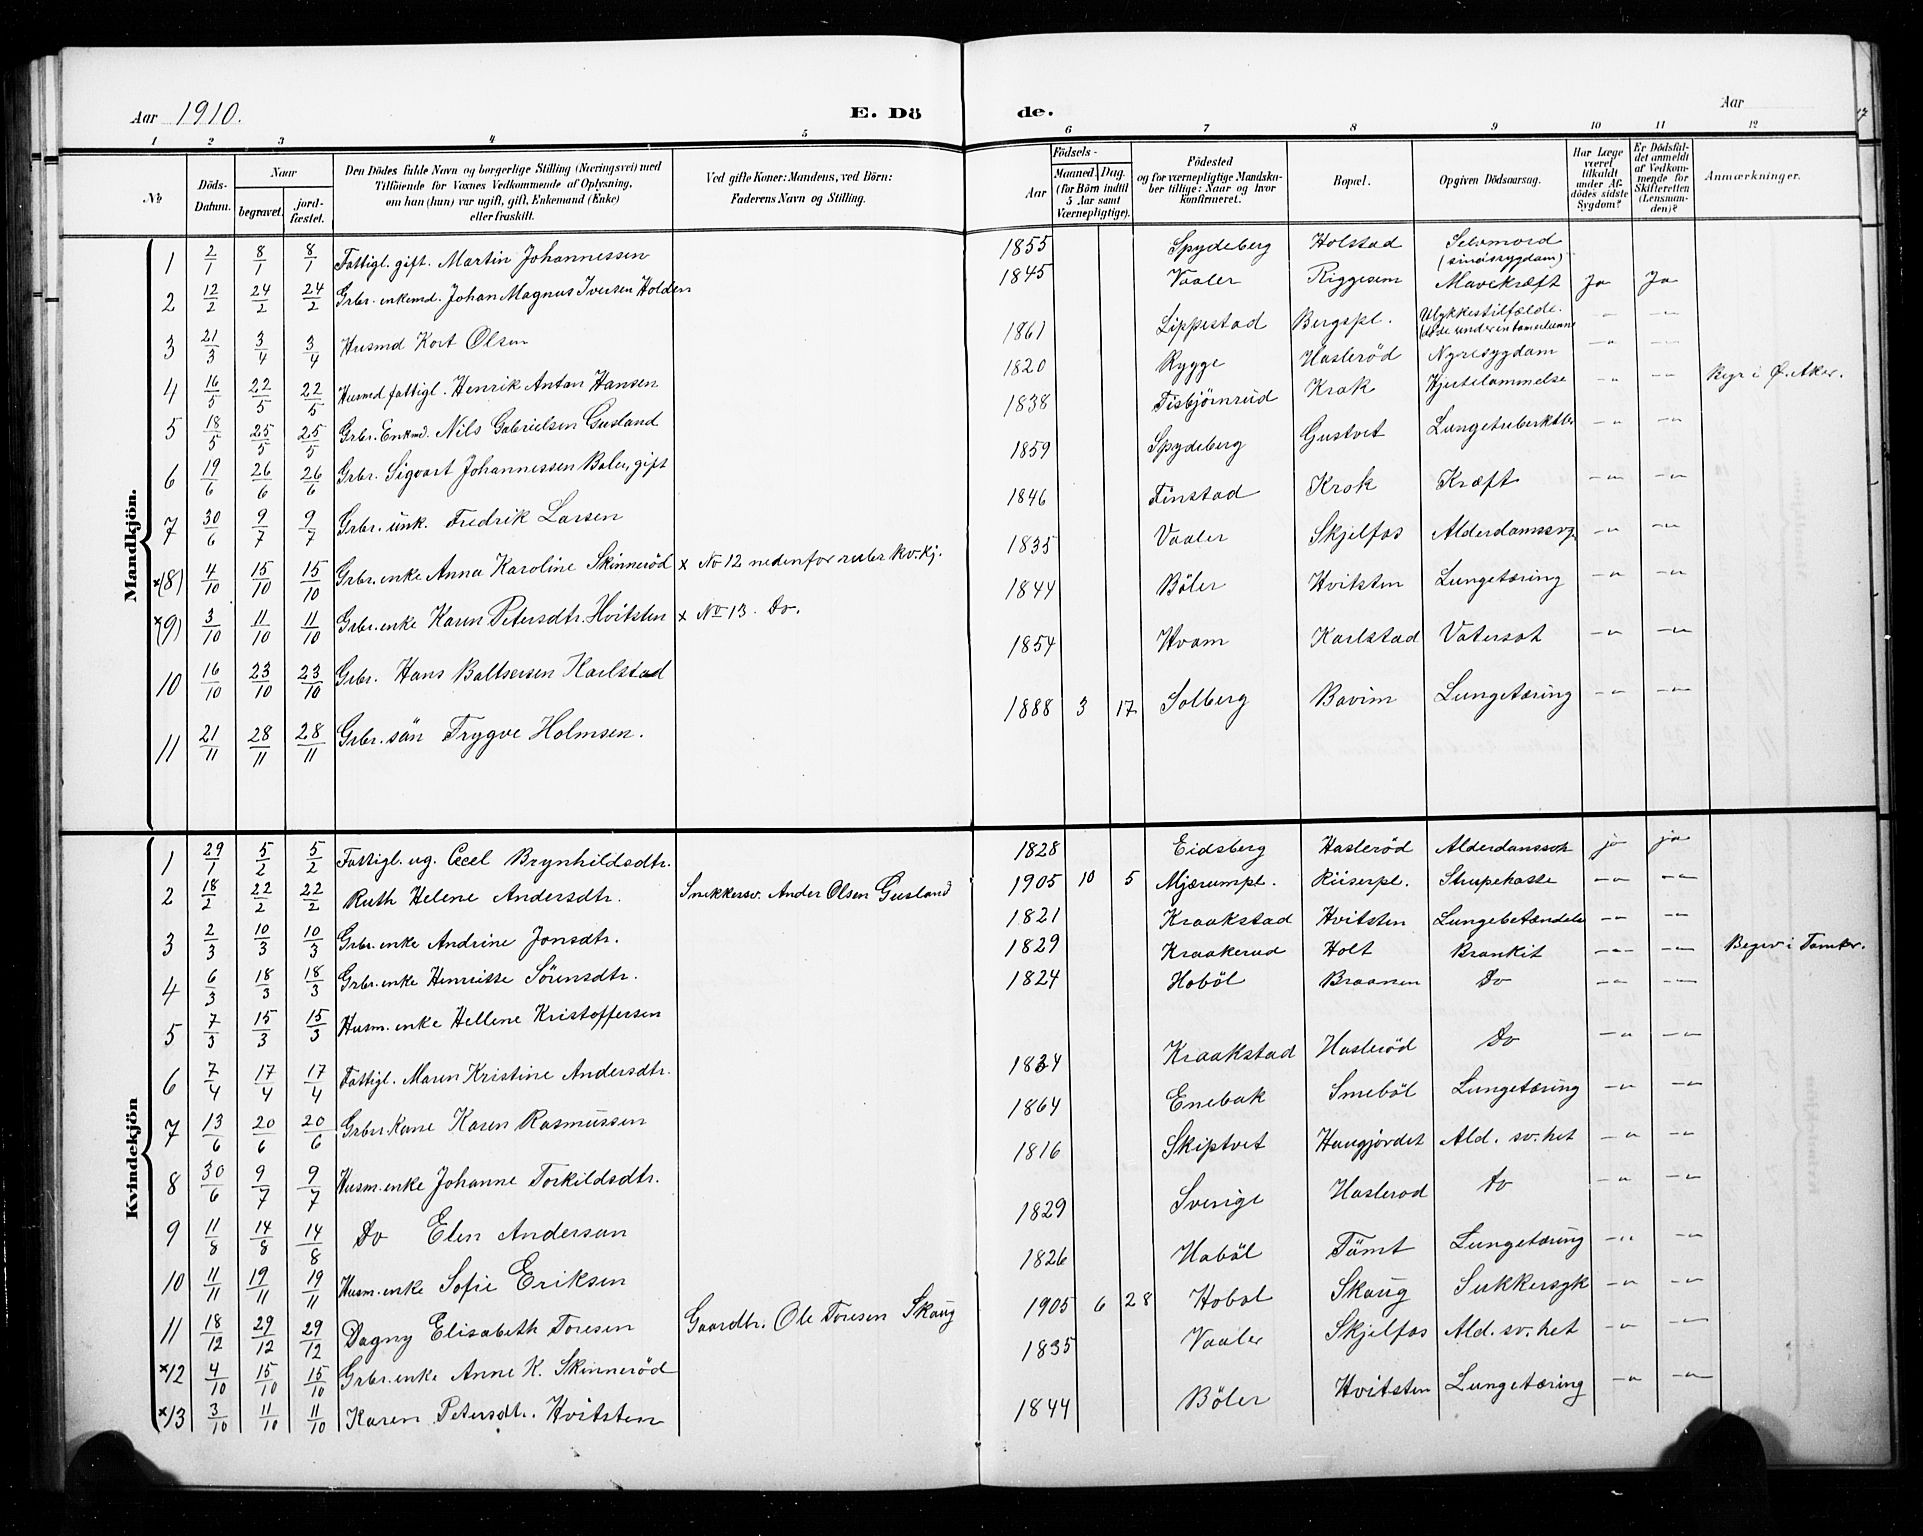 Aar 1910. E. Dö de. Aar
1 2 3 4 5 6 7 8 9 10 11 12
№ Döds-Datum. Naar begravet. jord-fæstet. Den Dödes fulde Navn og borgerlige Stilling (Næringsvei) med Tilföiende for Voxnes Vedkommende af Oplysning, om han (hun) var ugift, gift, Enkemand (Enke) eller fraskilt. Ved gifte Koner: Mandens, ved Börn: Faderens Navn og Stilling. Födsels- Aar Maaned. Dag. (for Börn indtil 5 Aar samt Værnepligtige). Födested og for værnepligtige Mandska-ber tillige: Naar og hvor konfirmeret. Bopæl. Opgiven Dödsaarsag. Har Læge været tilkaldt under Af-dödes sidste Sygdom? Er Dödsfal-det anmeldt af Vedkom-mende for Skifteretten (Lensman-den)? Anmærkninger.
Mandkjön.
1 2/1 8/1 8/1 Fattigl. gift. Martin Johannessen 1855 Spydeberg Holstad Selvmord (sindssygdam)
2 12/2 24/2 24/2 Grbr. enkemd. Johan Magnus Iversen Holden 1845 Vaaler Riggesem Mavekræft Ja Ja
3 21/3 3/4 3/4 Husmd Kort Olsen 1861 Lippestad Bergspl. Ulykkestilfælde. -"- -"-
4 16/5 22/5 22/5 Husmd fattigl. Henrik Antan Hansen 1820 Rygge Haslerød Nyresygdam -"- -"-
5 18/5 25/5 25/5 Grbr. Enkmd. Nils Gabrielsen Gusland 1838 Tisbjörnrud Krok Hjertelammelse -"- -"- Begr i Ø. Aker.
6 19/6 26/6 26/6 Grbr. Sigvart Johannessen Bøler, gift 1859 Spydeberg Gustvet Lungetuberkbler -"- -"-
7 30/6 9/7 9/7 Grbr. unk. Fredrik Larsen 1846 Finstad Krok Kræft -"- -"-
×(8) 4/10 15/10 15/10 Grbr. enke Anna Karoline Skinnerød × No 12 nedenfor under kv.kj. 1835 Vaaler Skjelfos Alderdamssvp. -"- -"-
×(9) 3/10 11/10 11/10 Grbr. enke Karen Petersdtr. Hvitsten × No 13. Do. 1844 Böler Hvitsten Lungetæring -"- -"-
10 16/10 23/10 23/10 Grbr. Hans Baltsersen Karlstad 1854 Hvam Karlstad Vatersot -"- -"-
11 21/11 28/11 28/11 Grbr. sön Trygve Holmsen. 1888 3 17 Solberg Bovim Lungetæring -"- -"-
Kvindekjön
1 29/1 5/2 5/2 Fattigl. ug. Cecel Brynhildsdtr. 1828 Eidsberg Haslerød Alderdanssvp. ja ja
2 18/2 22/2 22/2 Ruth Helene Andersdtr. Snekkersv. Ander Olsen Gusland 1905 10 5 Mjærumpl. Riiserpl. Strupehoste -"- -"-
3 2/3 10/3 10/3 Grbr. enke Andrine Jonsdtr. 1821 Kraakstad Hvitsten Lungebetændelse -"- -"-
4 6/3 18/3 18/3 Grbr. enke Henriette Sörensdtr. 1829 Kraakerud Holt Bronkit -"- -"- Begrv i Tomter.
5 7/3 15/3 15/3 Husm. enke Hellene Kristoffersen 1824 Hoböl Braanen Do -"- -"-
6 7/4 17/4 17/4 Fattigl. Maren Kristine Andersdtr. 1834 Kraakstad Haslerød Do -"- -"-
7 13/6 20/6 20/6 Grbr. Kone Karen Rasmussen 1864 Enebak Smeböl Lungetæring -"- -"-
8 30/6 9/7 9/7 Husm. enke Johanne Torkildsdtr. 1816 Skiptvet Haugjördet Ald. sv.het -"- -"-
9 11/8 14/8 14/8 Do Elen Andersan 1829 Sverige Haslerod Do -"- -"-
10 11/11 19/11 19/11 Husm. enke Sofie Eriksen 1826 Haböl Tömt Lungetæring -"- -"-
11 18/12 29/12 29/12 Dagny Elisabeth Toresen Gaardbr. Ole Toresen Skaug 1905 6 28 Hobol Skaug Sukkersyk -"- -"-
×12 4/10 15/10 15/10 Grbr. enke Anne K. Skinnerød 1835 Vaaler Skjelfos Ald. sv.het -"- -"-
×13 3/10 11/10 11/10 Karen Petersdtr. Hvitsten 1844 Böler Hvitsten Lungetæring -"- -"-